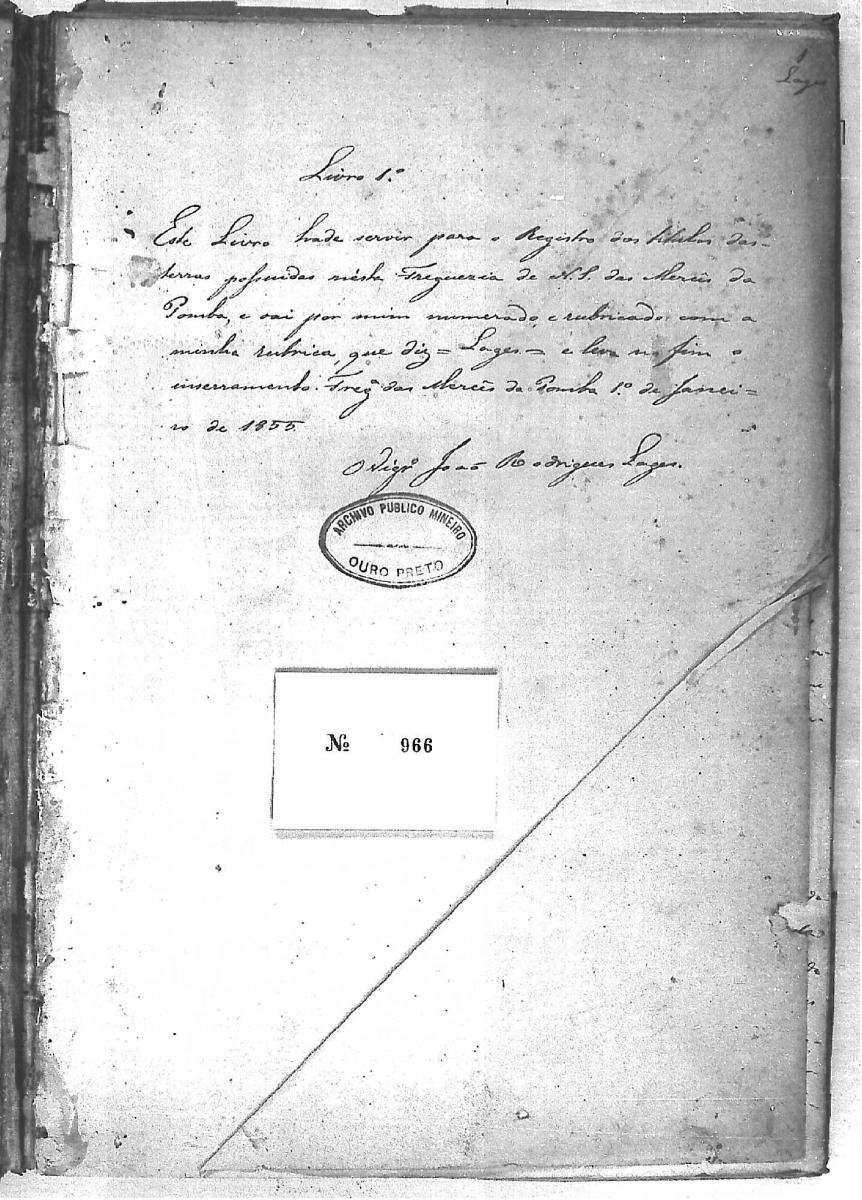 1
Lages
Livro 1.º
Este Livro hade servir para o Registro dos titulos das
terras possuidas nésta Freguezia de N. S. das Mercês da
Pomba, e vai por mim numerado, e rubricado com a
minha rubrica, que diz = Lages = e leva no fim o
inserramento. Fregª das Mercês da Pomba 1.º de Janei=
ro de 1855
O Vigrº João Rodrigues Lages.
ARCHIVO PUBLICO MINEIRO
OURO PRETO
Nº 966